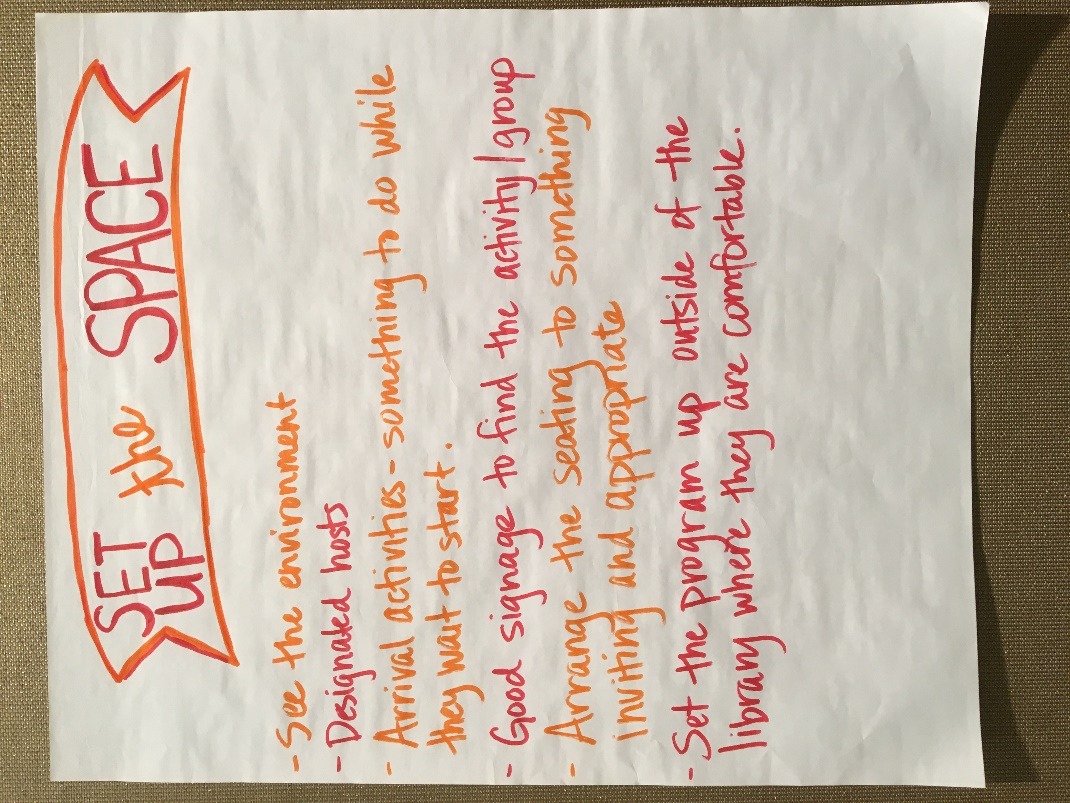 SET UP the SPACE
- See the environment
- Designated hosts
- Arrival activities - something to do while
they wait to start.
- Good signage to find the activity/group
- Arrange the seating to something
inviting and appropriate
- Set the program up outside of the
library where they are comfortable.